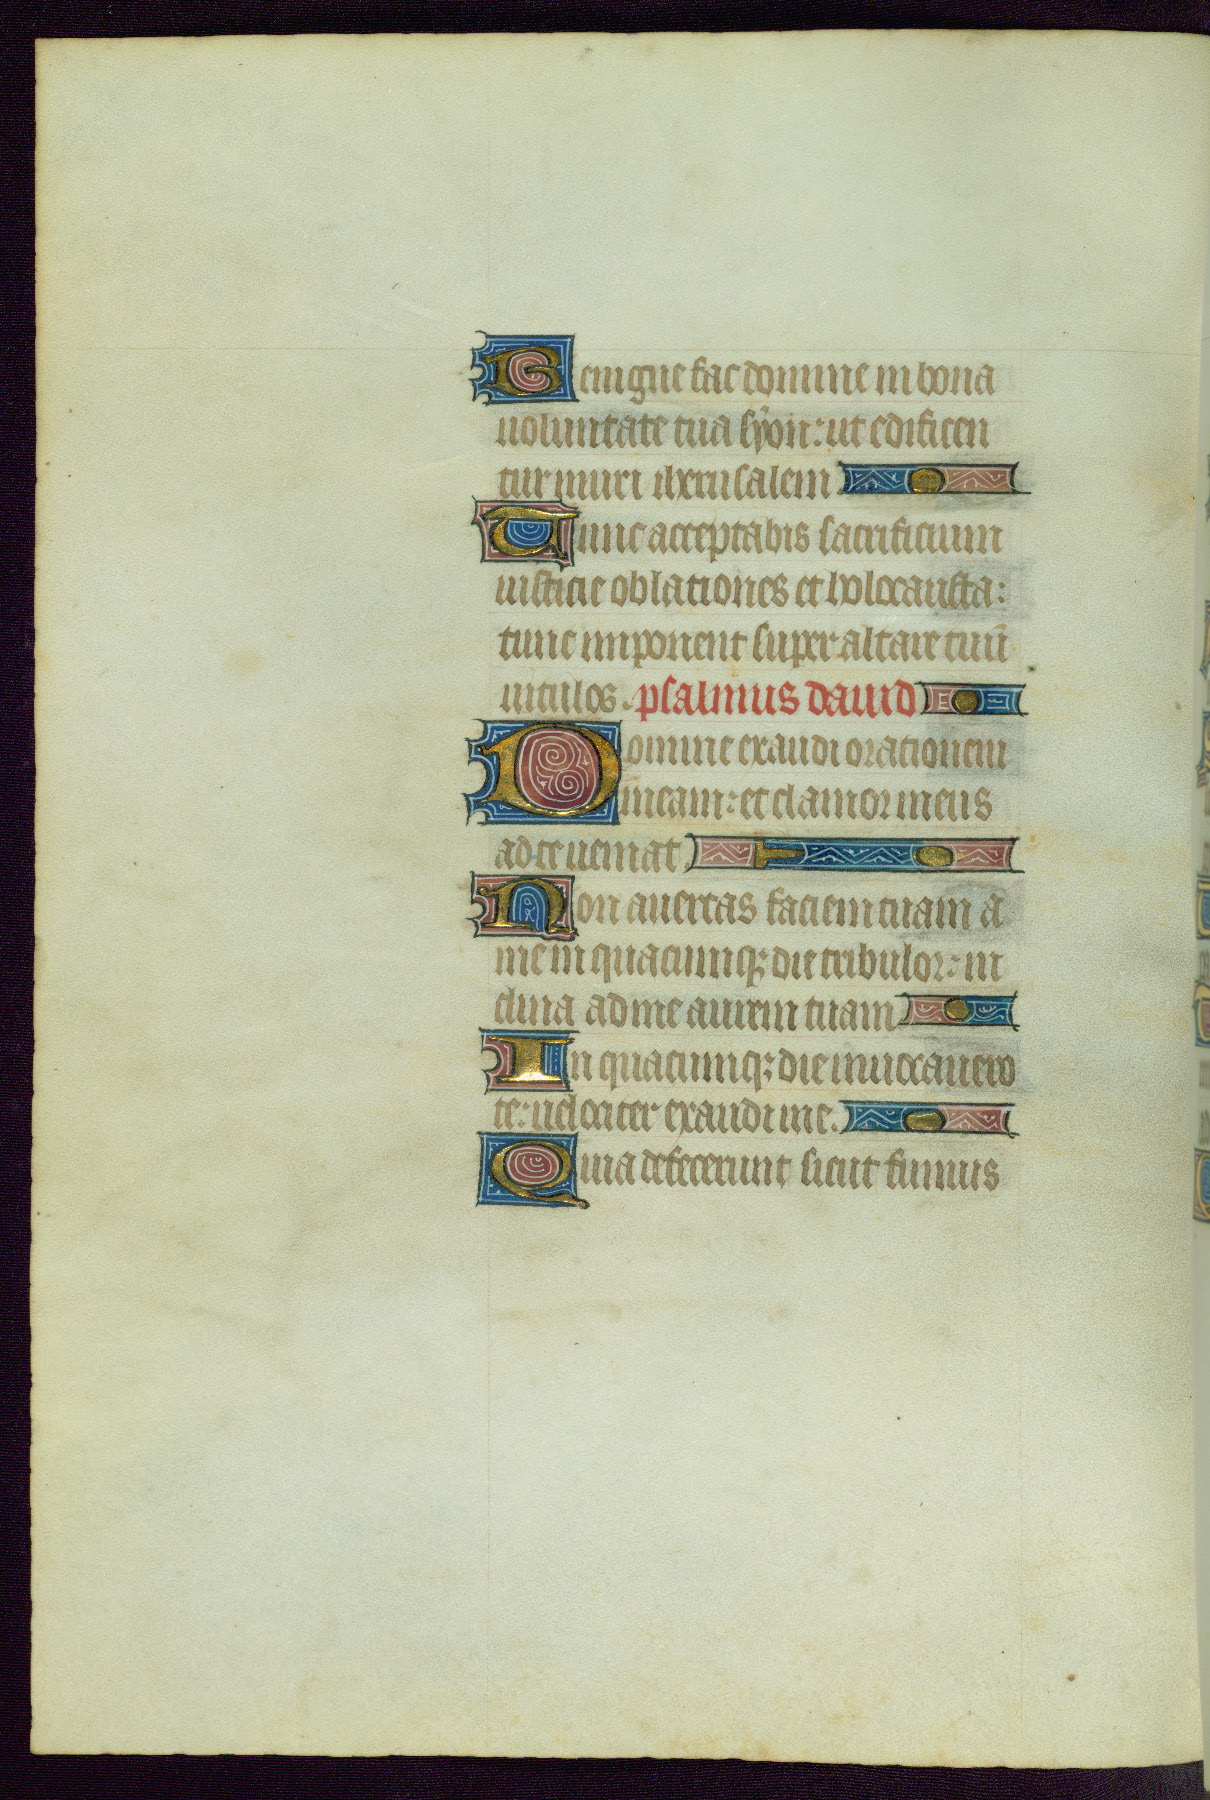 Benigne fac domine in bona
uoluntate tua syon: ut edificen
tur muri iherusalem
Tunc acceptabis sacrificium
iusticie oblationes et holocausta:
tunc imponent super altare tuū
uitulos. psalmus dauid
Domine exaudi orationem
meam: et clamor meus
ad te ueniat
Non auertas faciem tuam a
me in quacumqꝫ die tribulor: in
clina ad me aurem tuam
In quacumqꝫ die inuocauero
te: uelociter exaudi me.
Quia defecerunt sicut fumus